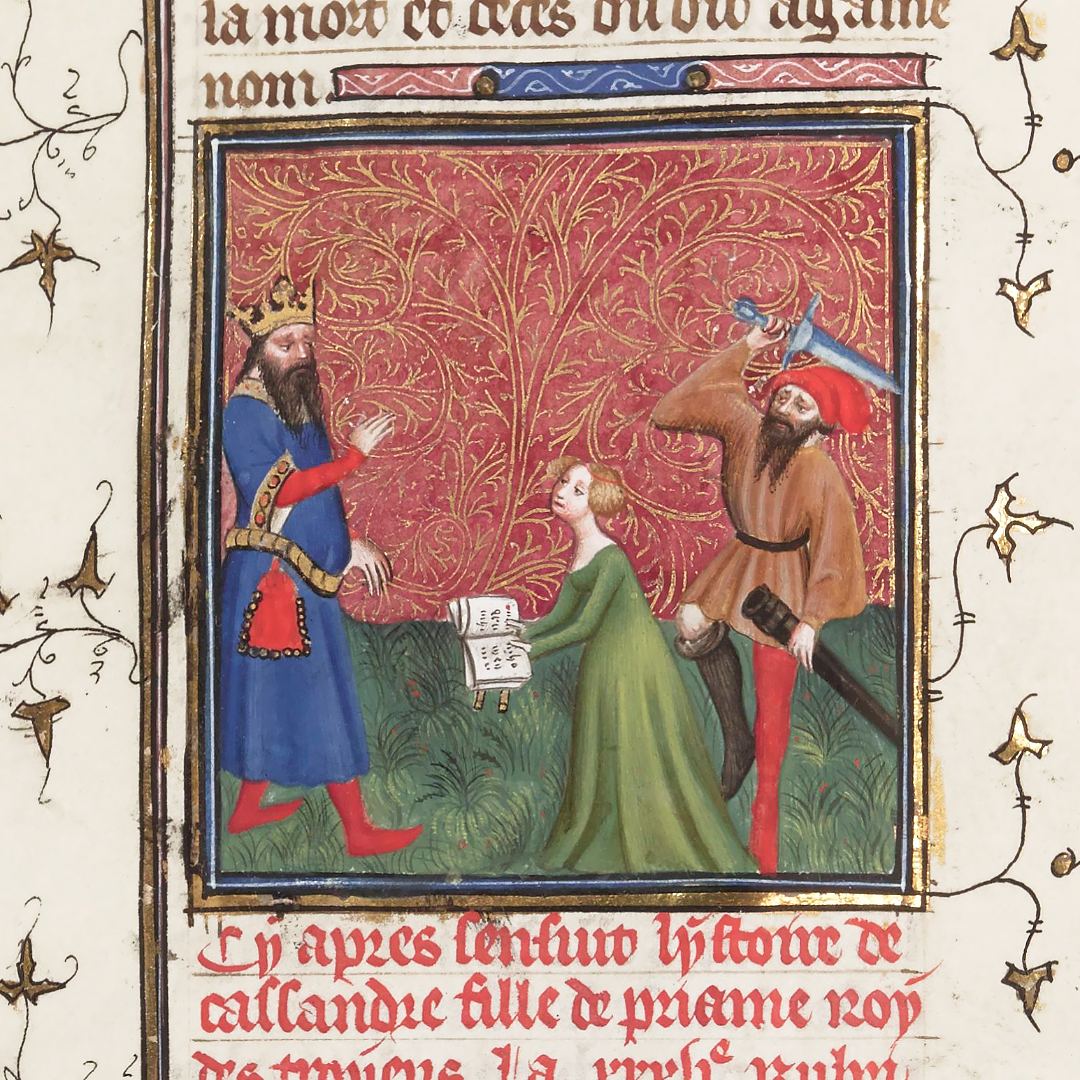 la mort et deces du dit agame
nom.
Cy apres sensuit lystoire de
cassandre fille de priame roy
des troyens La